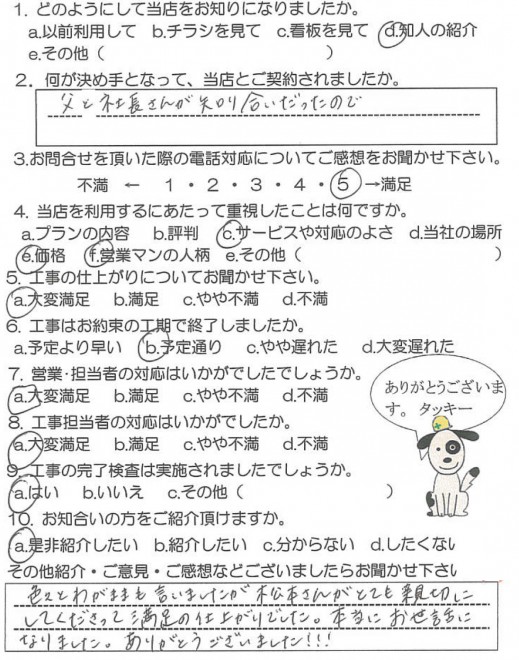 1. どのようにして当店をお知りになりましたか。
a.以前利用して b.チラシを見て c.看板を見て d.知人の紹介
e.その他（ ）
2. 何が決め手となって、当店とご契約されましたか。
父と社長さんが知り合いだったので
3.お問合せを頂いた際の電話対応についてご感想をお聞かせ下さい。
不満 ← 1・2・3・4・5→満足
4. 当店を利用するにあたって重視したことは何ですか。
a.プランの内容 b.評判 c.サービスや対応のよさ d.当社の場所
e.価格 f.営業マンの人柄 e.その他（ ）
5. 工事の仕上がりについてお聞かせ下さい。
a.大変満足 b.満足 c.やや不満 d.不満
6. 工事はお約束の工期で終了しましたか。
a.予定より早い b.予定通り c.やや遅れた d.大変遅れた
7. 営業・担当者の対応はいかがでしたでしょうか。
a.大変満足 b.満足 c.やや不満 d.不満
ありがとうございま
す。 タッキー
8. 工事担当者の対応はいかがでしたか。
a.大変満足 b.満足 c.やや不満 d.不満
9. 工事の完了検査は実施されましたでしょうか。
a.はい b.いいえ c.その他（ ）
10. お知合いの方をご紹介頂けますか。
a.是非紹介したい b.紹介したい c.分からない d.したくない
その他紹介・ご意見・ご感想などございましたらお聞かせ下さい
色々とわがままも言いましたが松本さんがとても親切に
してくださって満足の仕上がりでした。本当にお世話に
なりました。ありがとうございました!!!